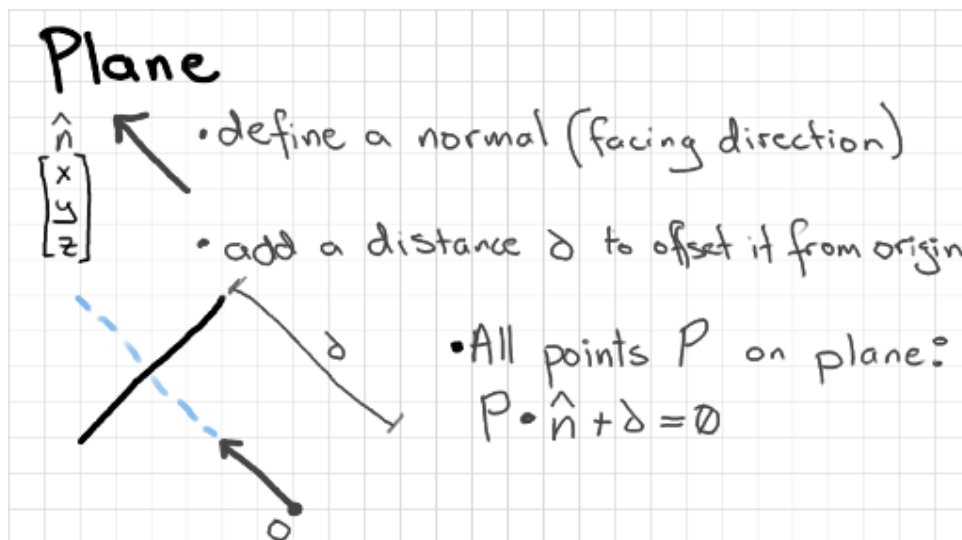 Plane
n̂
[x
y
z]
• define a normal (facing direction)
• add a distance d to offset it from origin
d
• All points P on plane:
P • n̂ + d = 0
O